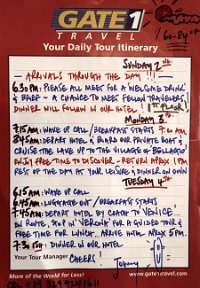 GATE 1
TRAVEL
Your Daily Tour Itinerary
60-84°F
SUNDAY 2ND
- ARRIVALS THROUGH THE DAY !!!
6.30PM: PLEASE ALL MEET FOR A WELCOME DRINK
& BRIEF - A CHANCE TO MEET FELLOW TRAVELERS
DINNER WILL FOLLOW IN OUR HOTEL 1ST FLOOR
MONDAY 3RD
7.15AM: WAKE UP CALL / BREAKFAST STARTS 7.00AM
8.45AM: DEPART HOTEL & BOARD OUR PRIVATE BOAT &
CRUISE THE LAKE UP TO THE VILLAGE OF 'BELLAGIO'
ENJOY FREE TIME TO DISCOVER - RETURN APPRX 1PM
REST OF THE DAY AT YOUR LEISURE & DINNER ON OWN
TUESDAY 4TH
6.15AM: WAKE UP CALL
6.45AM: LUGGAGE OUT / BREAKFAST STARTS
7.45AM: DEPART HOTEL BY COACH TO 'VENICE'!
EN ROUTE, STOP IN 'VERONA' FOR A GUIDED TOUR &
FREE TIME FOR LUNCH. ARRIVE HOTEL APPRX 5PM.
7.30PM: DINNER IN OUR HOTEL
Your Tour Manager CHEERS! Johnny
More of the World for Less! www.gate1travel.com